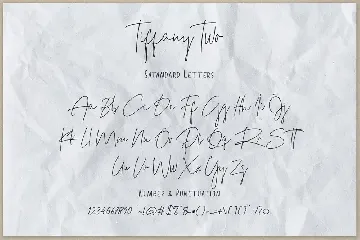 Tiffany Two
Satandard Letters
Aa Bb Cc Dd Ff Gg Hh Ii Jj
Kk Ll Mm Nn Oo Pp Qq Rr Ss Tt
Uu Vv Ww Xx Yy Zz
Number & Punctuation
1234567890